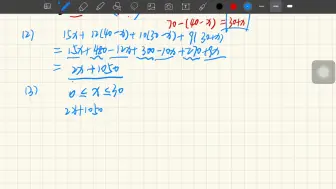 70-(40-x)=30+x
(2) 15x+12(40-x)+10(30-x)+9(30+x)
=15x+480-12x+300-10x+270+9x
=2x+1050
(3) 0≤x≤30
2x+1050